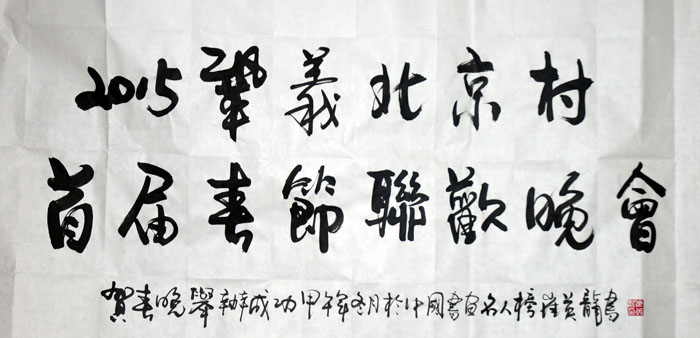 2015鞏義北京村
首届春節聯歡晚會
賀春晚舉辦成功甲午年冬月於中國書畫名人榜崔英龍書